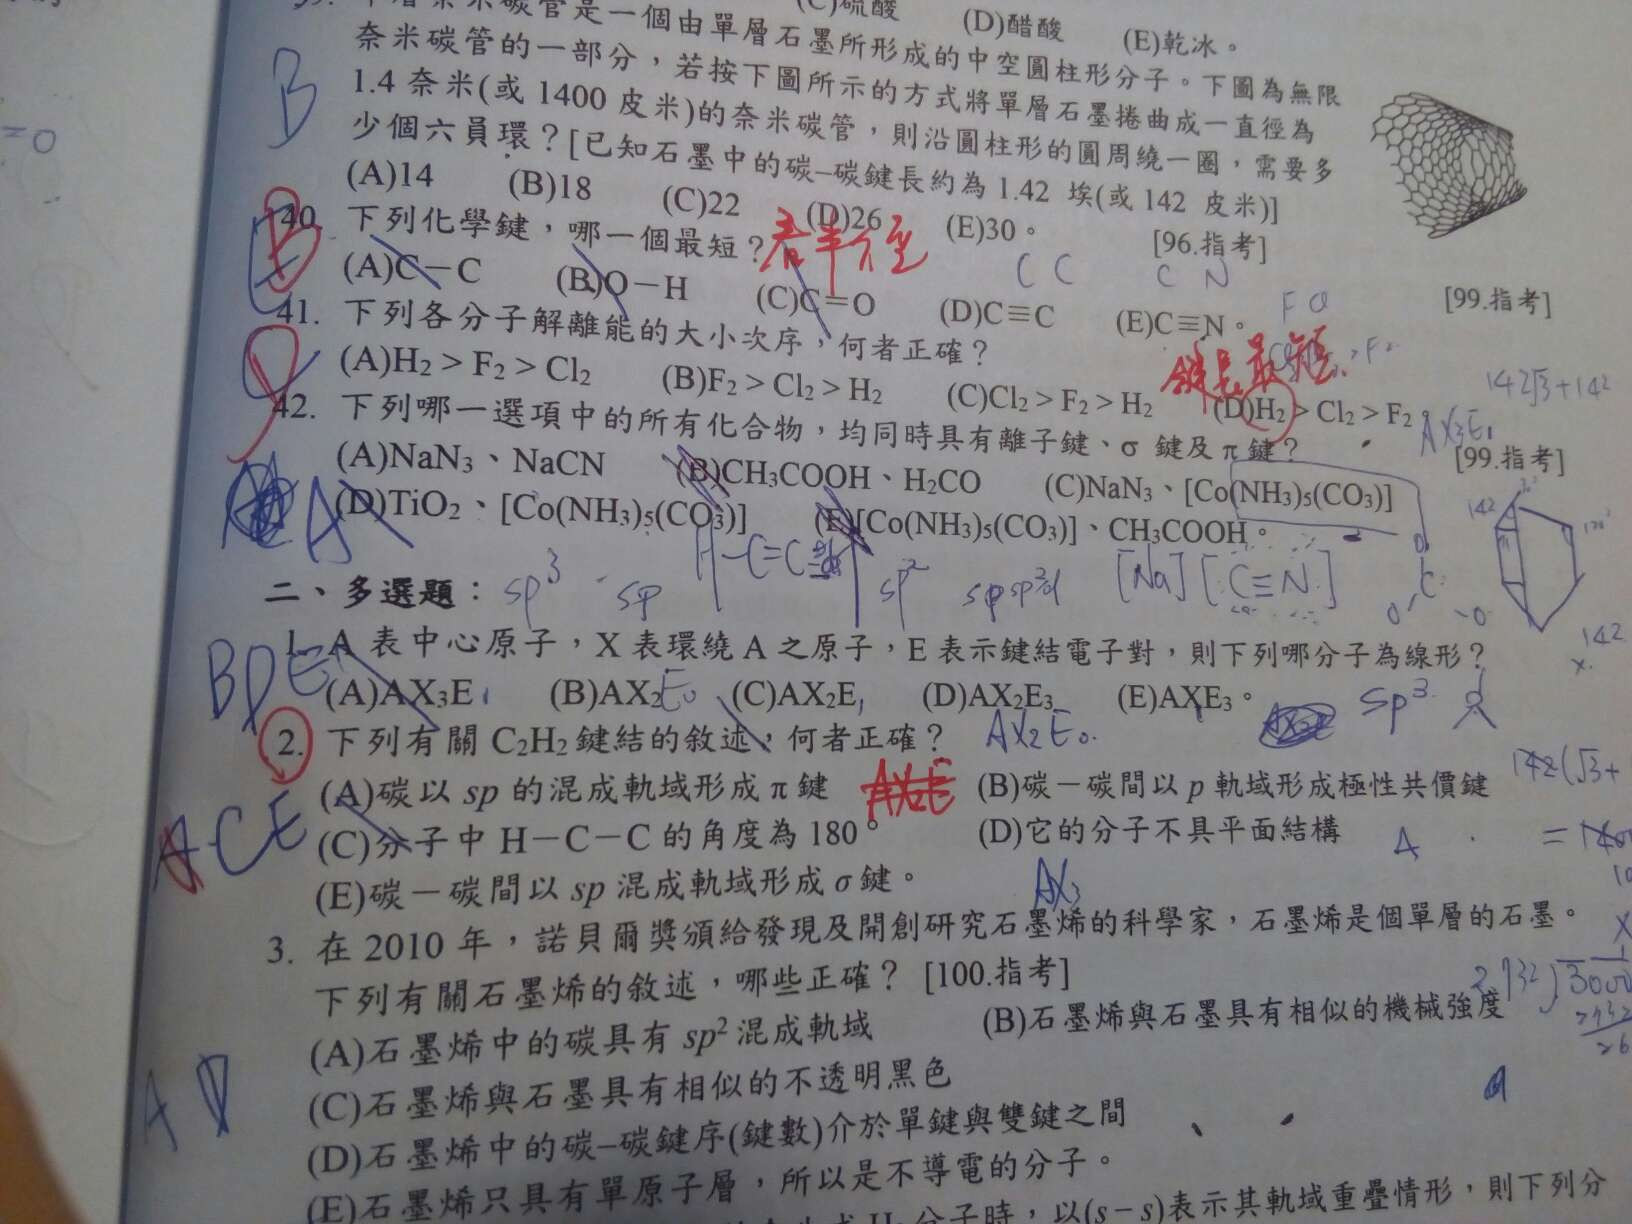 (C)硫酸 (D)醋酸 (E)乾冰。
奈米碳管是一個由單層石墨所形成的中空圓柱形分子。下圖為無限
奈米碳管的一部分，若按下圖所示的方式將單層石墨捲曲成一直徑為
1.4 奈米(或 1400 皮米)的奈米碳管，則沿圓柱形的圓周繞一圈，需要多
少個六員環？[已知石墨中的碳–碳鍵長約為 1.42 埃(或 142 皮米)]
(A)14 (B)18 (C)22 (D)26 (E)30。 [96.指考]
B
40. 下列化學鍵，哪一個最短？ 看半徑
(A)C－C (B)O－H (C)C＝O (D)C≡C (E)C≡N。 [99.指考]
41. 下列各分子解離能的大小次序，何者正確？ 鍵長最短
(A)H2 > F2 > Cl2 (B)F2 > Cl2 > H2 (C)Cl2 > F2 > H2 (D)H2 > Cl2 > F2
42. 下列哪一選項中的所有化合物，均同時具有離子鍵、σ 鍵及 π 鍵？ [99.指考]
(A)NaN3、NaCN (B)CH3COOH、H2CO (C)NaN3、[Co(NH3)5(CO3)]
(D)TiO2、[Co(NH3)5(CO3)] (E)[Co(NH3)5(CO3)]、CH3COOH。
A
二、多選題： sp3 sp sp2 [Na][C≡N]
1. A 表中心原子，X 表環繞 A 之原子，E 表示鍵結電子對，則下列哪分子為線形？
BDE (A)AX3E (B)AX2E0 (C)AX2E (D)AX2E3 (E)AXE3。 sp3
2. 下列有關 C2H2 鍵結的敘述，何者正確？ AX2E0.
(A)碳以 sp 的混成軌域形成 π 鍵 (B)碳－碳間以 p 軌域形成極性共價鍵
ACE (C)分子中 H－C－C 的角度為 180° (D)它的分子不具平面結構
(E)碳－碳間以 sp 混成軌域形成 σ 鍵。 AX3
3. 在 2010 年，諾貝爾獎頒給發現及開創研究石墨烯的科學家，石墨烯是個單層的石墨。
下列有關石墨烯的敘述，哪些正確？ [100.指考]
(A)石墨烯中的碳具有 sp2 混成軌域 (B)石墨烯與石墨具有相似的機械強度
(C)石墨烯與石墨具有相似的不透明黑色
AD (D)石墨烯中的碳–碳鍵序(鍵數)介於單鍵與雙鍵之間
(E)石墨烯只具有單原子層，所以是不導電的分子。
H2 分子時，以(s－s)表示其軌域重疊情形，則下列分